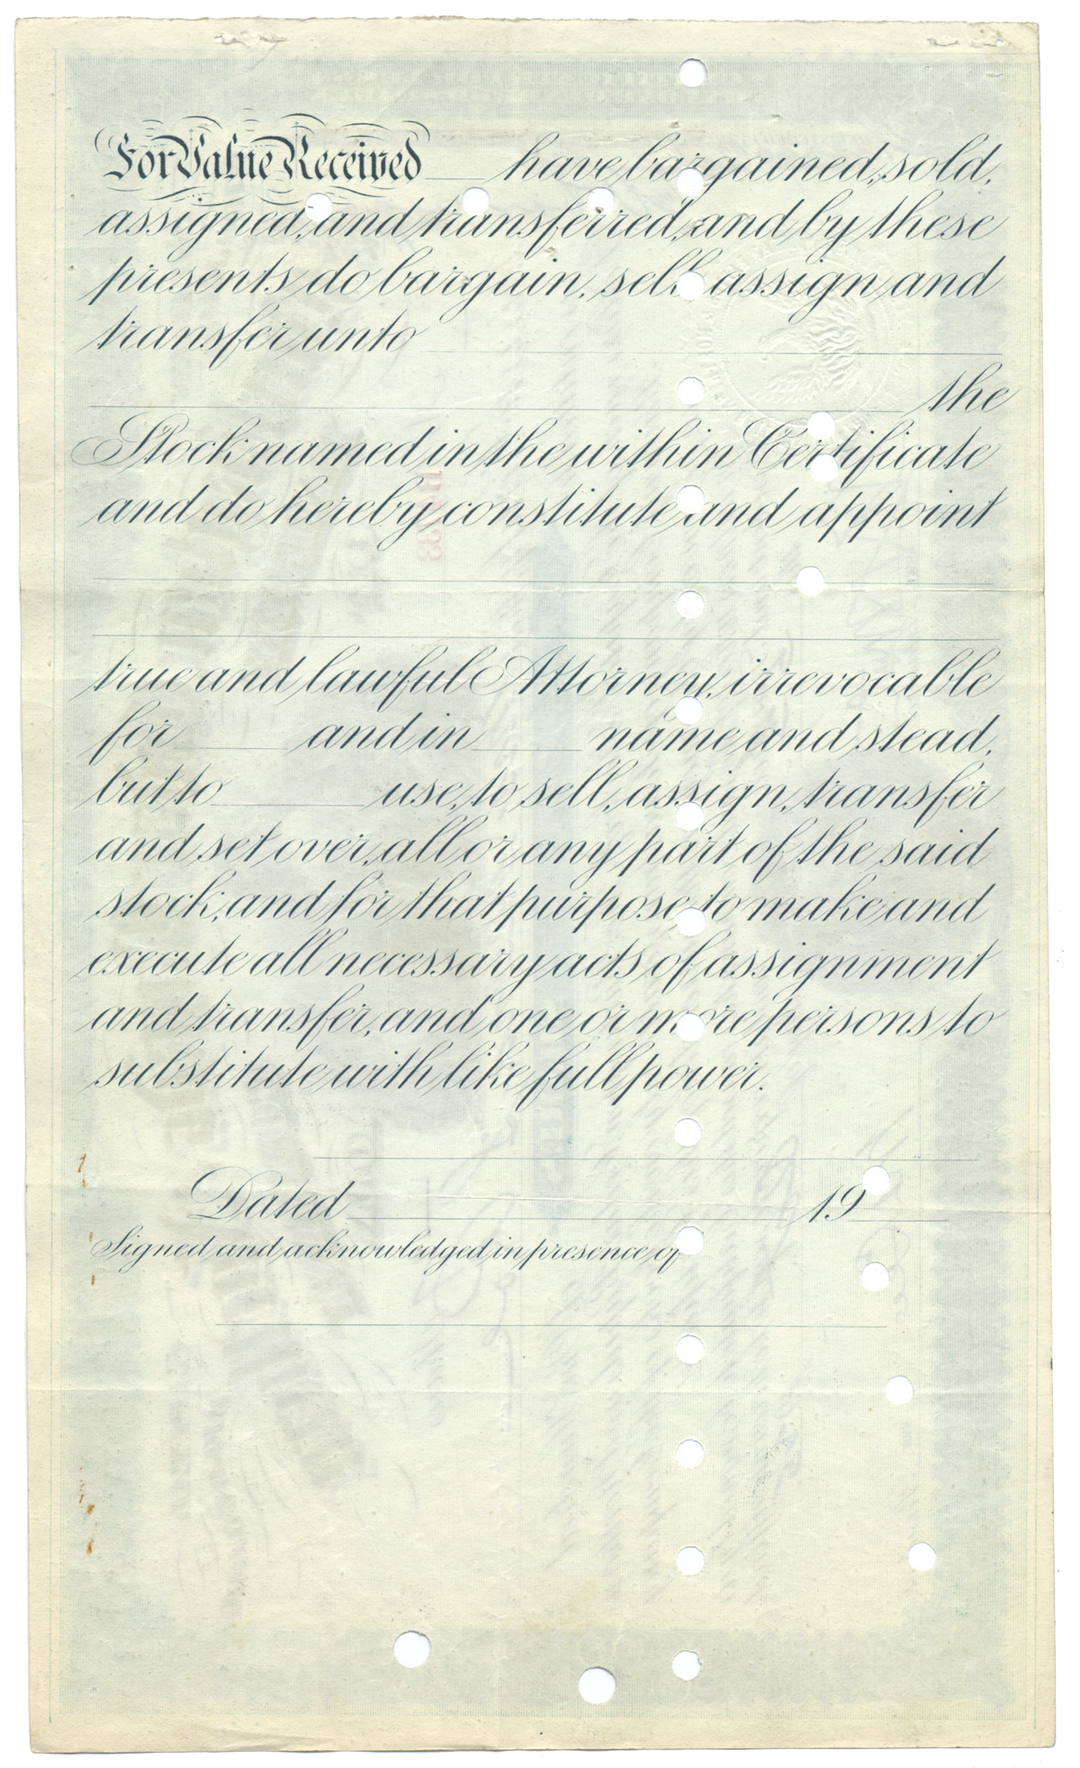 For Value Received ___ have bargained, sold,
assigned, and transferred, and by these
presents do bargain, sell, assign and
transfer unto
the
Stock named in the within Certificate
and do hereby constitute and appoint
true and lawful Attorney, irrevocable
for ___ and in ___ name and stead,
but to ___ use, to sell, assign, transfer
and set over, all or any part of the said
stock, and for that purpose, to make and
execute all necessary acts of assignment
and transfer, and one or more persons to
substitute with like full power.
Dated ___ 19
Signed and acknowledged in presence of